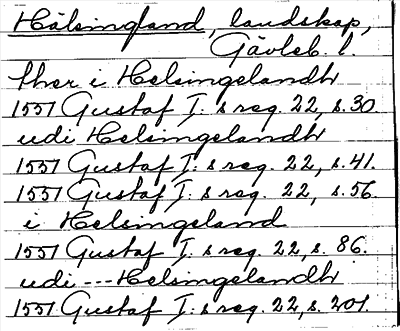 Hälsingland, landskap,
Gävleb. l.
ther i Helsingelandh
1551 Gustaf I: s reg. 22, s. 30
udi Helsingelandh
1551 Gustaf I: s reg. 22, s. 41.
1551 Gustaf I: s reg. 22, s. 56.
i Helsingeland
1551 Gustaf I: s reg. 22, s. 86.
udi --- Helsingelandh
1551 Gustaf I: s reg. 22, s. 201.